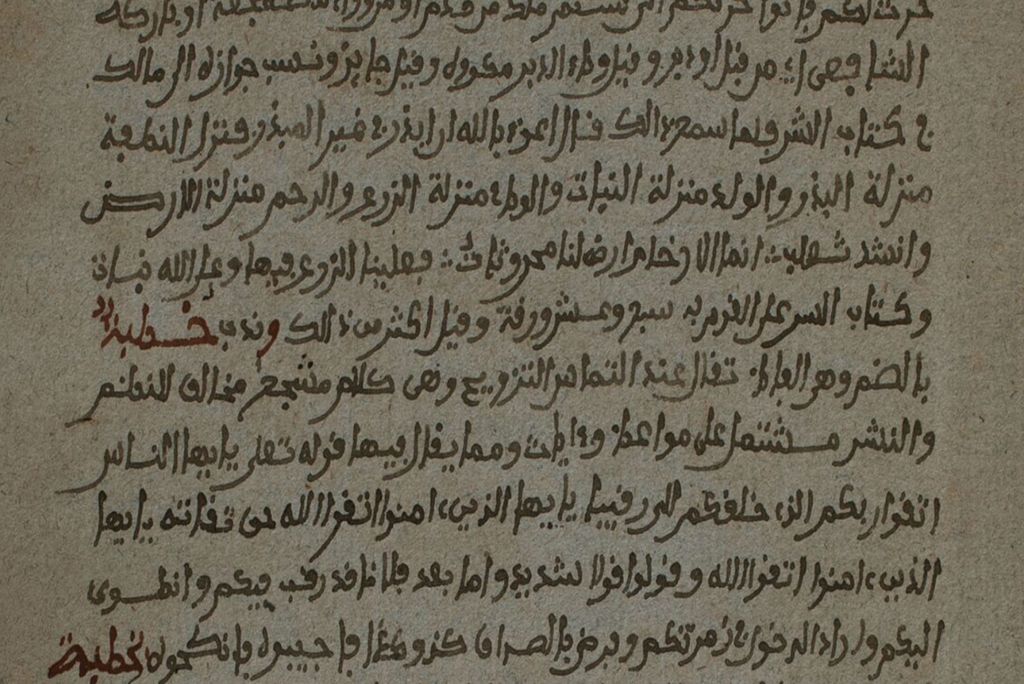 حرث لكم فاتوا حرثكم انى شئتم
الشا فهى اي من قبل او دبر وقيل وطء الدبر مكروه وقيل جايز ونسب جوازه الى مالك
في كتاب السر فلما سمع ذالك فال اعوذ بالله ايا بذر في غير المبذر فنزل النطفة
منزلة البذر والولد منزلة النبات والوطء منزلة الزرع والرحم منزلة الارض
وانشد ثعلب انما الارحام ارضو لنا محروثات فعلينا الزرع فيها وعلى الله نبات
وكتاب السر على الفرر به سبع وعشر ورفة وفيل اكثر من ذالك وندب خطبة
بالضم وهى الفاظ تفال عند التماس التزويج وهى كلام مسجع مخالف للنظم
والنثر مشتمل على مواعظ وءايات ومما يفال فيها فوله تعلى يايها الناس
اتفوا ربكم الذى خلفكم الى رفيبا يا يها الذين ءامنوا اتفوا الله حق تفاته يا يها
الذين ءامنوا اتفوا الله وفولوا فولا سديدا واما بعد فلانا فد رغب فيكم وانطوى
اليكم واراد الدخول في زمرتكم وفرض بالصداق كذا وكذا فاجيبوه فانكحوه بخطبة